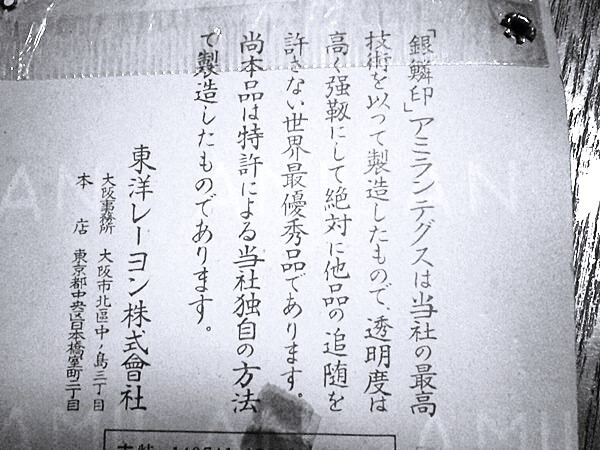 「銀鱗印」アミランテグスは当社の最高
技術を以つて製造したもので、透明度は
高く强靱にして絶対に他品の追随を
許さない世界最優秀品であります。
尚本品は特許による当社独自の方法
で製造したものであります。
東洋レーヨン株式會社
大阪事務所 大阪市北區中ノ島三丁目
本店 東京都中央区日本橋室町二丁目